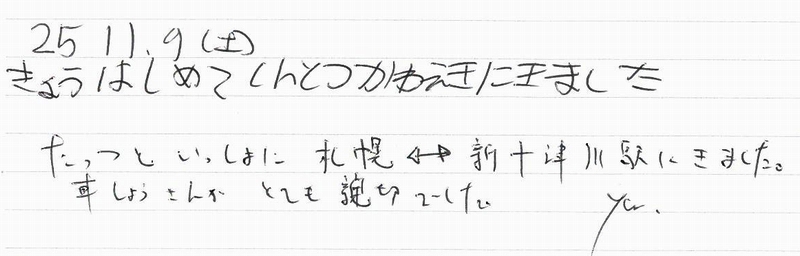 25 11.9(土)
きょうはじめてしんとつかわえきにきました
たっつといっしょに 札幌 ↔ 新十津川駅にきました。
車しょうさんが とても親切でした。